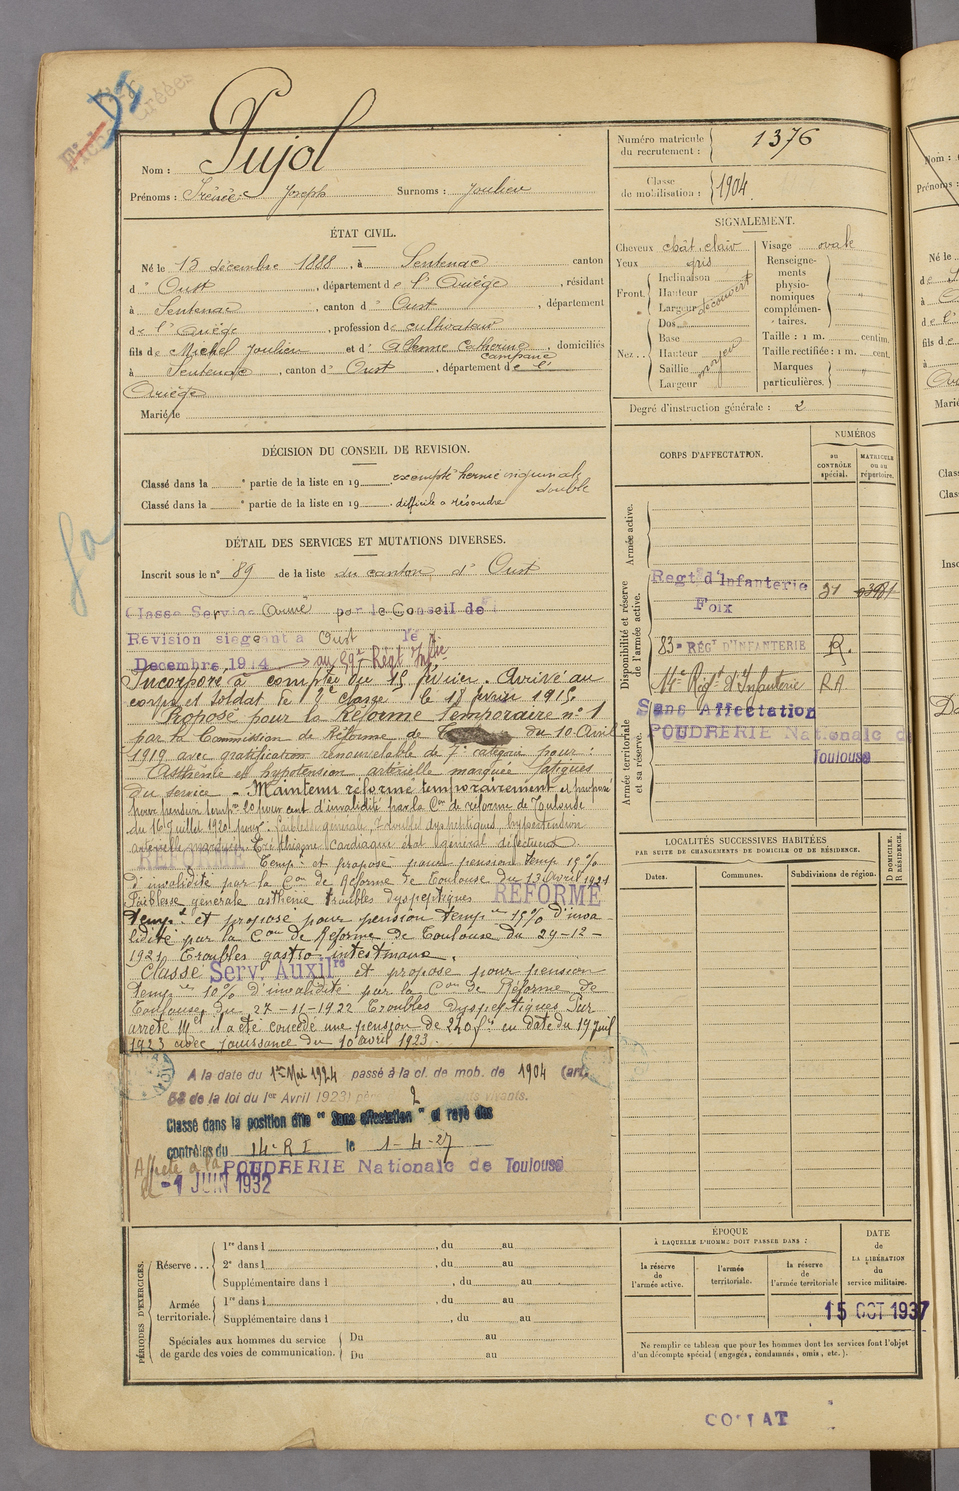 Pujol
Nom :
Prénoms : Irénée Joseph Surnoms : Joulieu
ÉTAT CIVIL.
Né le 15 décembre 1888, à Sentenac canton
d'Oust, département de l'Ariège, résidant
à Sentenac, canton d'Oust, département
de l'Ariège, profession de cultivateur
fils de Michel Joulieu et d' Catherine, domiciliés
à Sentenac, canton d'Oust, département de l'
Ariège
Marié le
DÉCISION DU CONSEIL DE REVISION.
Classé dans la e partie de la liste en 19 exempté hernie inguinale double
Classé dans la e partie de la liste en 19 difficile à résoudre
DÉTAIL DES SERVICES ET MUTATIONS DIVERSES.
Inscrit sous le n° 89 de la liste du canton d'Oust
Classé Service Armé par le Conseil de
Revision siégeant à Oust le
Decembre 1914 au 59e Régt Infie
Incorporé à compter du 15 février. Arrivé au
corps et soldat de 2e classe le 18 février 1915.
Proposé pour la Réforme Temporaire n° 1
par la Commission de Réforme de du 10 Avril
1919 avec gratification renouvelable de 7e catégorie pour :
Asthénie et hypotension artérielle marquée fatigues
du service - Maintenu réformé temporairement et proposé
pour pension tempre 20 pour cent d'invalidité par la Con de réforme de Toulouse
du 16 Juillet 1920 pour : faiblesse générale, troubles dyspeptiques, hypertension
artérielle Eréthisme cardiaque état général défectueux
REFORMÉ Tempt et proposé pour pension temp 15 %
d'invalidité par la Con de Réforme de Toulouse du 13 Avril 1921
Faiblesse générale asthénie troubles dyspeptiques REFORMÉ
Tempt et proposé pour pension temp 15 % d'inva-
lidité par la Con de Réforme de Toulouse du 29-12-
1921 Troubles gastro-intestinaux.
Classé Serv. Auxilre et proposé pour pension
Temp 10 % d'invalidité par la Con de Réforme de
Toulouse, du 27-11-1922 Troubles dyspeptiques Par
arrêté Mel il a été concédé une pension de 240f en date du 19 Juil
1923 avec jouissance du 10 avril 1923.
A la date du 1er Mai 1924 passé à la cl. de mob. de 1904 (art.
58 de la loi du 1er Avril 1923) 2 vivants.
Classé dans la position dite " Sans affectation " et rayé des
contrôles du 14e R I le 1-4-27
Affecté à la POUDRERIE Nationale de Toulouse
le -1 JUIN 1932
PÉRIODES D'EXERCICES.
Réserve ... 1re dans l , du au
2e dans l , du au
Supplémentaire dans l , du au
Armée territoriale. 1re dans l , du au
Supplémentaire dans l , du au
Spéciales aux hommes du service
de garde des voies de communication. Du au
Du au
Numéro matricule
du recrutement : 1376
Classe
de mobilisation : 1904
SIGNALEMENT.
Cheveux chât. clair
Yeux gris
Front. Inclinaison
Hauteur
Largeur découvert
Nez... Dos
Base
Hauteur moyen
Saillie
Largeur
Visage ovale
Renseigne-
ments
physio-
nomiques
complémen-
taires.
Taille : 1 m. centim.
Taille rectifiée : 1 m. cent.
Marques
particulières.
Degré d'instruction générale : 2
CORPS D'AFFECTATION.
NUMÉROS
au CONTRÔLE spécial.
MATRICULE ou au répertoire.
Armée active.
Disponibilité et réserve
de l'armée active.
Regt d'Infanterie
Foix
83e RÉGt D'INFANTERIE R.
14e Régt d'Infanterie RA
Armée territoriale
et sa réserve.
Sans Affectation
POUDRERIE Nationale de
Toulouse
LOCALITÉS SUCCESSIVES HABITÉES
PAR SUITE DE CHANGEMENTS DE DOMICILE OU DE RÉSIDENCE.
Dates. Communes. Subdivisions de région. D DOMICILE. R RÉSIDENCE.
ÉPOQUE
À LAQUELLE L'HOMME DOIT PASSER DANS :
la réserve
de
l'armée active.
l'armée
territoriale.
la réserve
de
l'armée territoriale
DATE
de
LA LIBÉRATION
du
service militaire.
15 OCT 1937
Ne remplir ce tableau que pour les hommes dont les services font l'objet
d'un décompte spécial (engagés, condamnés, omis, etc.).